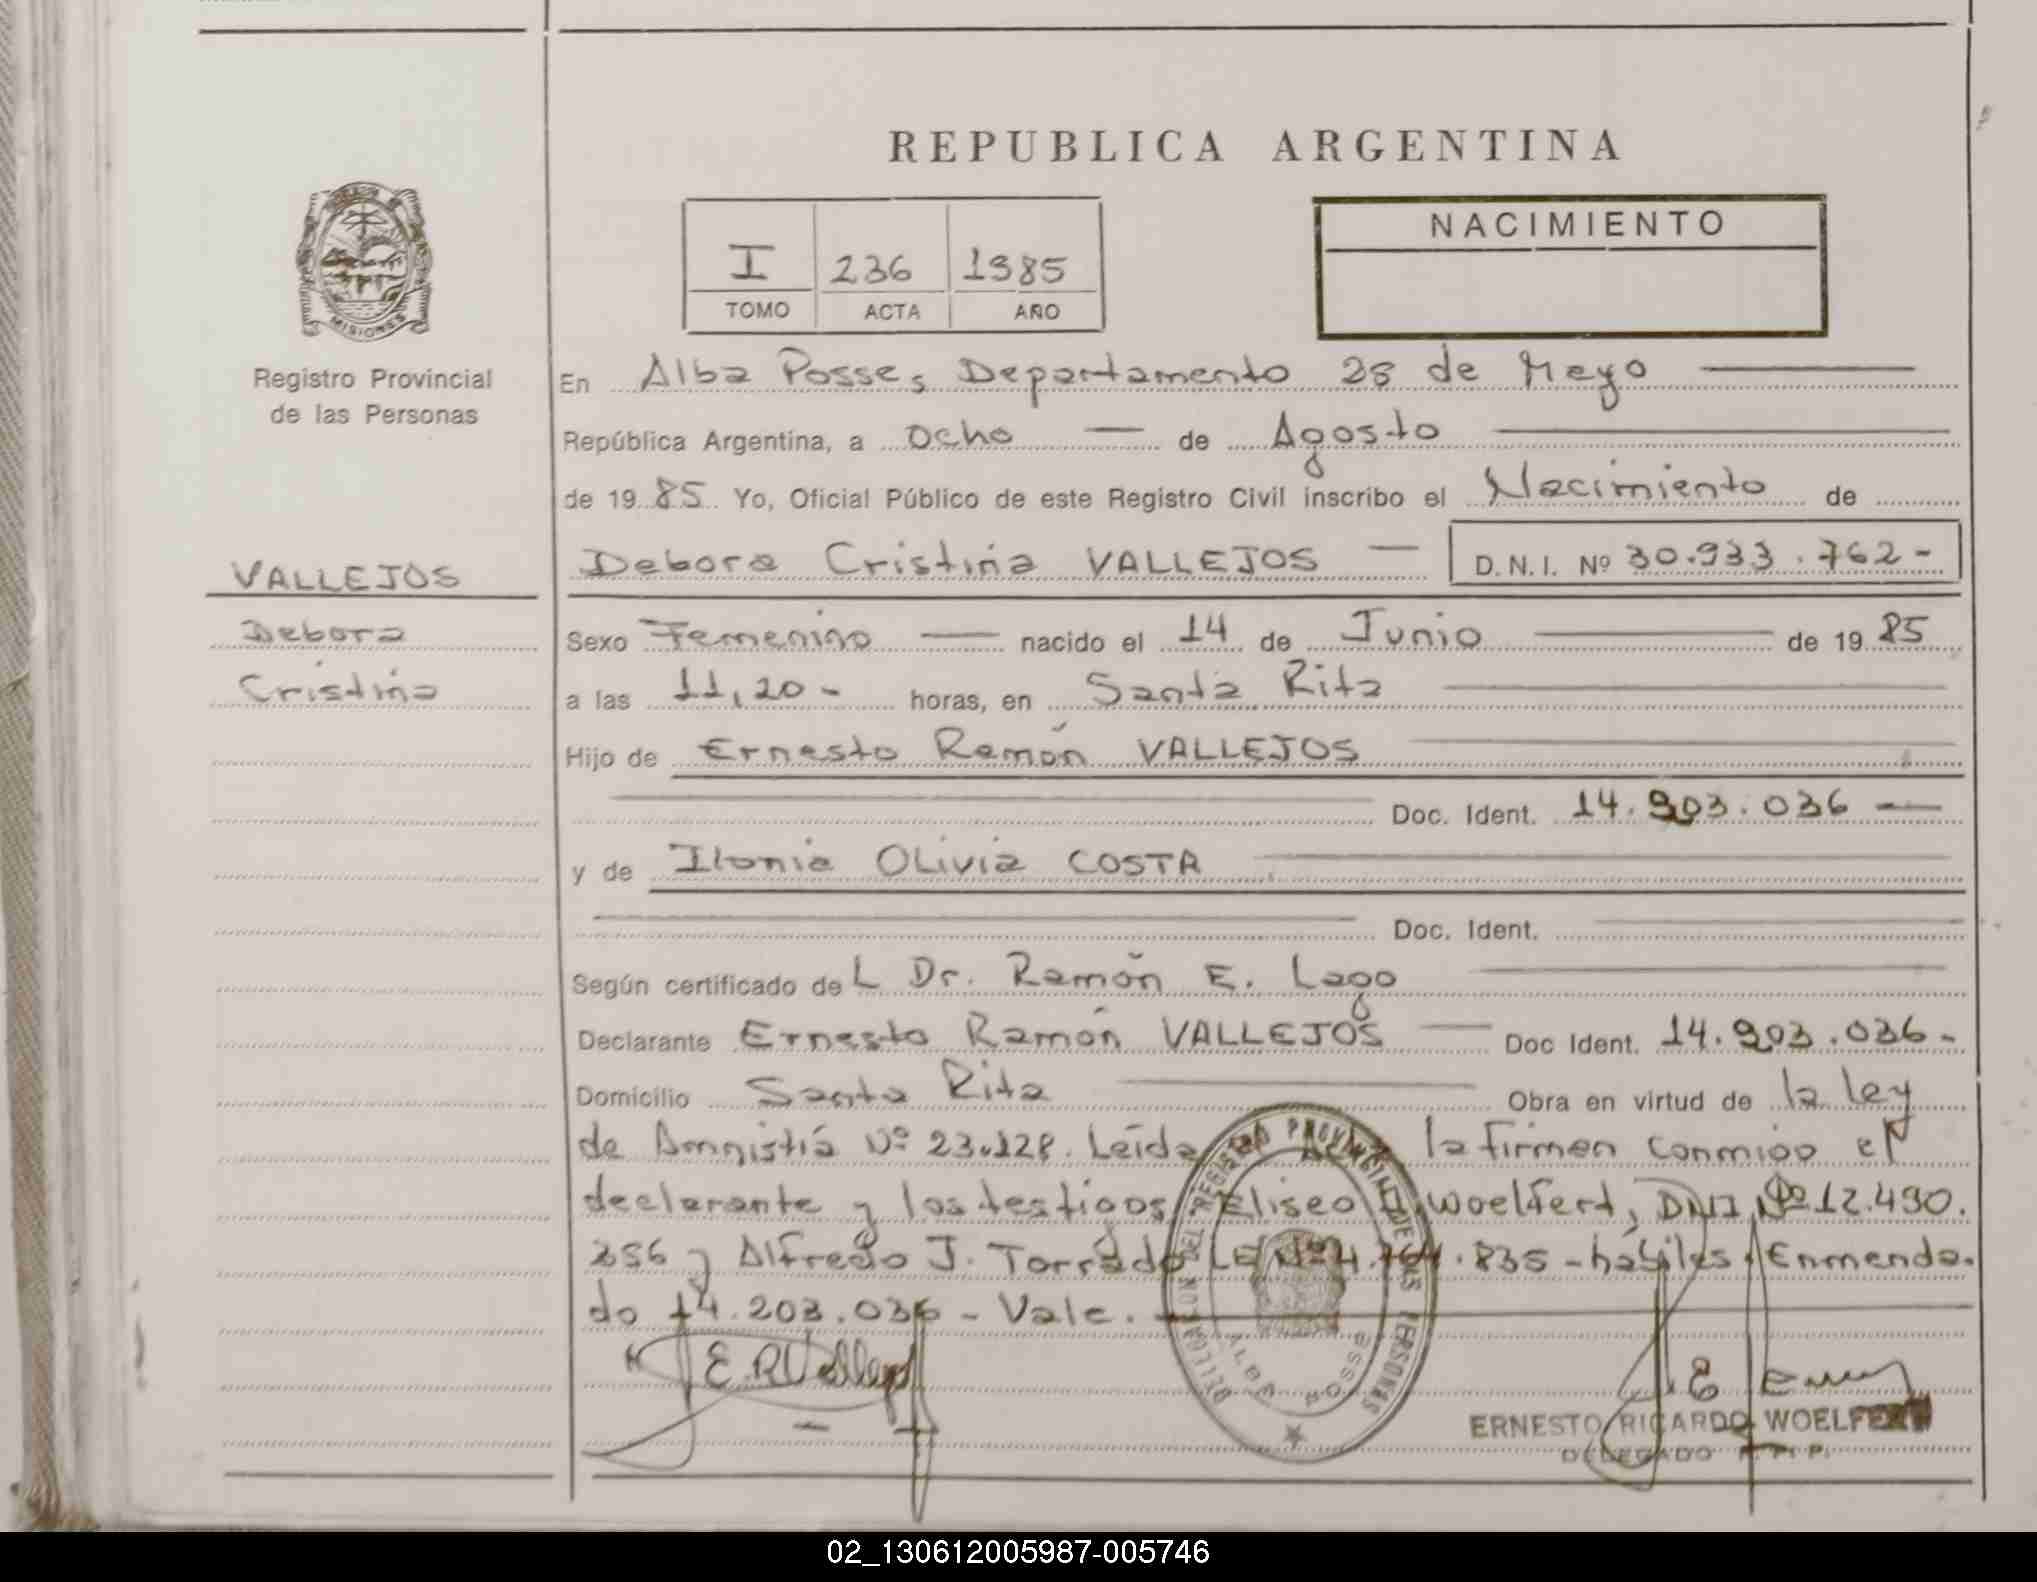 REPUBLICA ARGENTINA
MISIONES
Registro Provincial
de las Personas
I 236 1985
TOMO ACTA AÑO
NACIMIENTO
En Alba Posse, Departamento 25 de Mayo
República Argentina, a ocho de Agosto
de 1985 Yo, Oficial Público de este Registro Civil inscribo el Nacimiento de
VALLEJOS
Debora
Cristina
Debora Cristina VALLEJOS D.N.I. Nº 30.933.762-
Sexo Femenino nacido el 14 de Junio de 1985
a las 11,20- horas, en Santa Rita
Hijo de Ernesto Ramón VALLEJOS
Doc. Ident. 14.903.036
y de Ilonia Olivia COSTA
Doc. Ident.
Según certificado del Dr. Ramón E. Lago
Declarante Ernesto Ramón VALLEJOS Doc Ident. 14.903.036-
Domicilio Santa Rita Obra en virtud de la ley
de Amnistia Nº 23.128. Leída la firman conmigo el
declarante y los testigos Eliseo Woelfert, DNI Nº 12.490.
356 y Alfredo J. Torrado LE Nº 4. .835 - hábiles. Enmenda-
do 14.203.036 - Vale.
DELEGACION DEL REGISTRO PROVINCIAL DE LAS PERSONAS
ALBA POSSE
E. R. Vallejos
ERNESTO RICARDO WOELFERT
DELEGADO R. P. P.
02_130612005987-005746